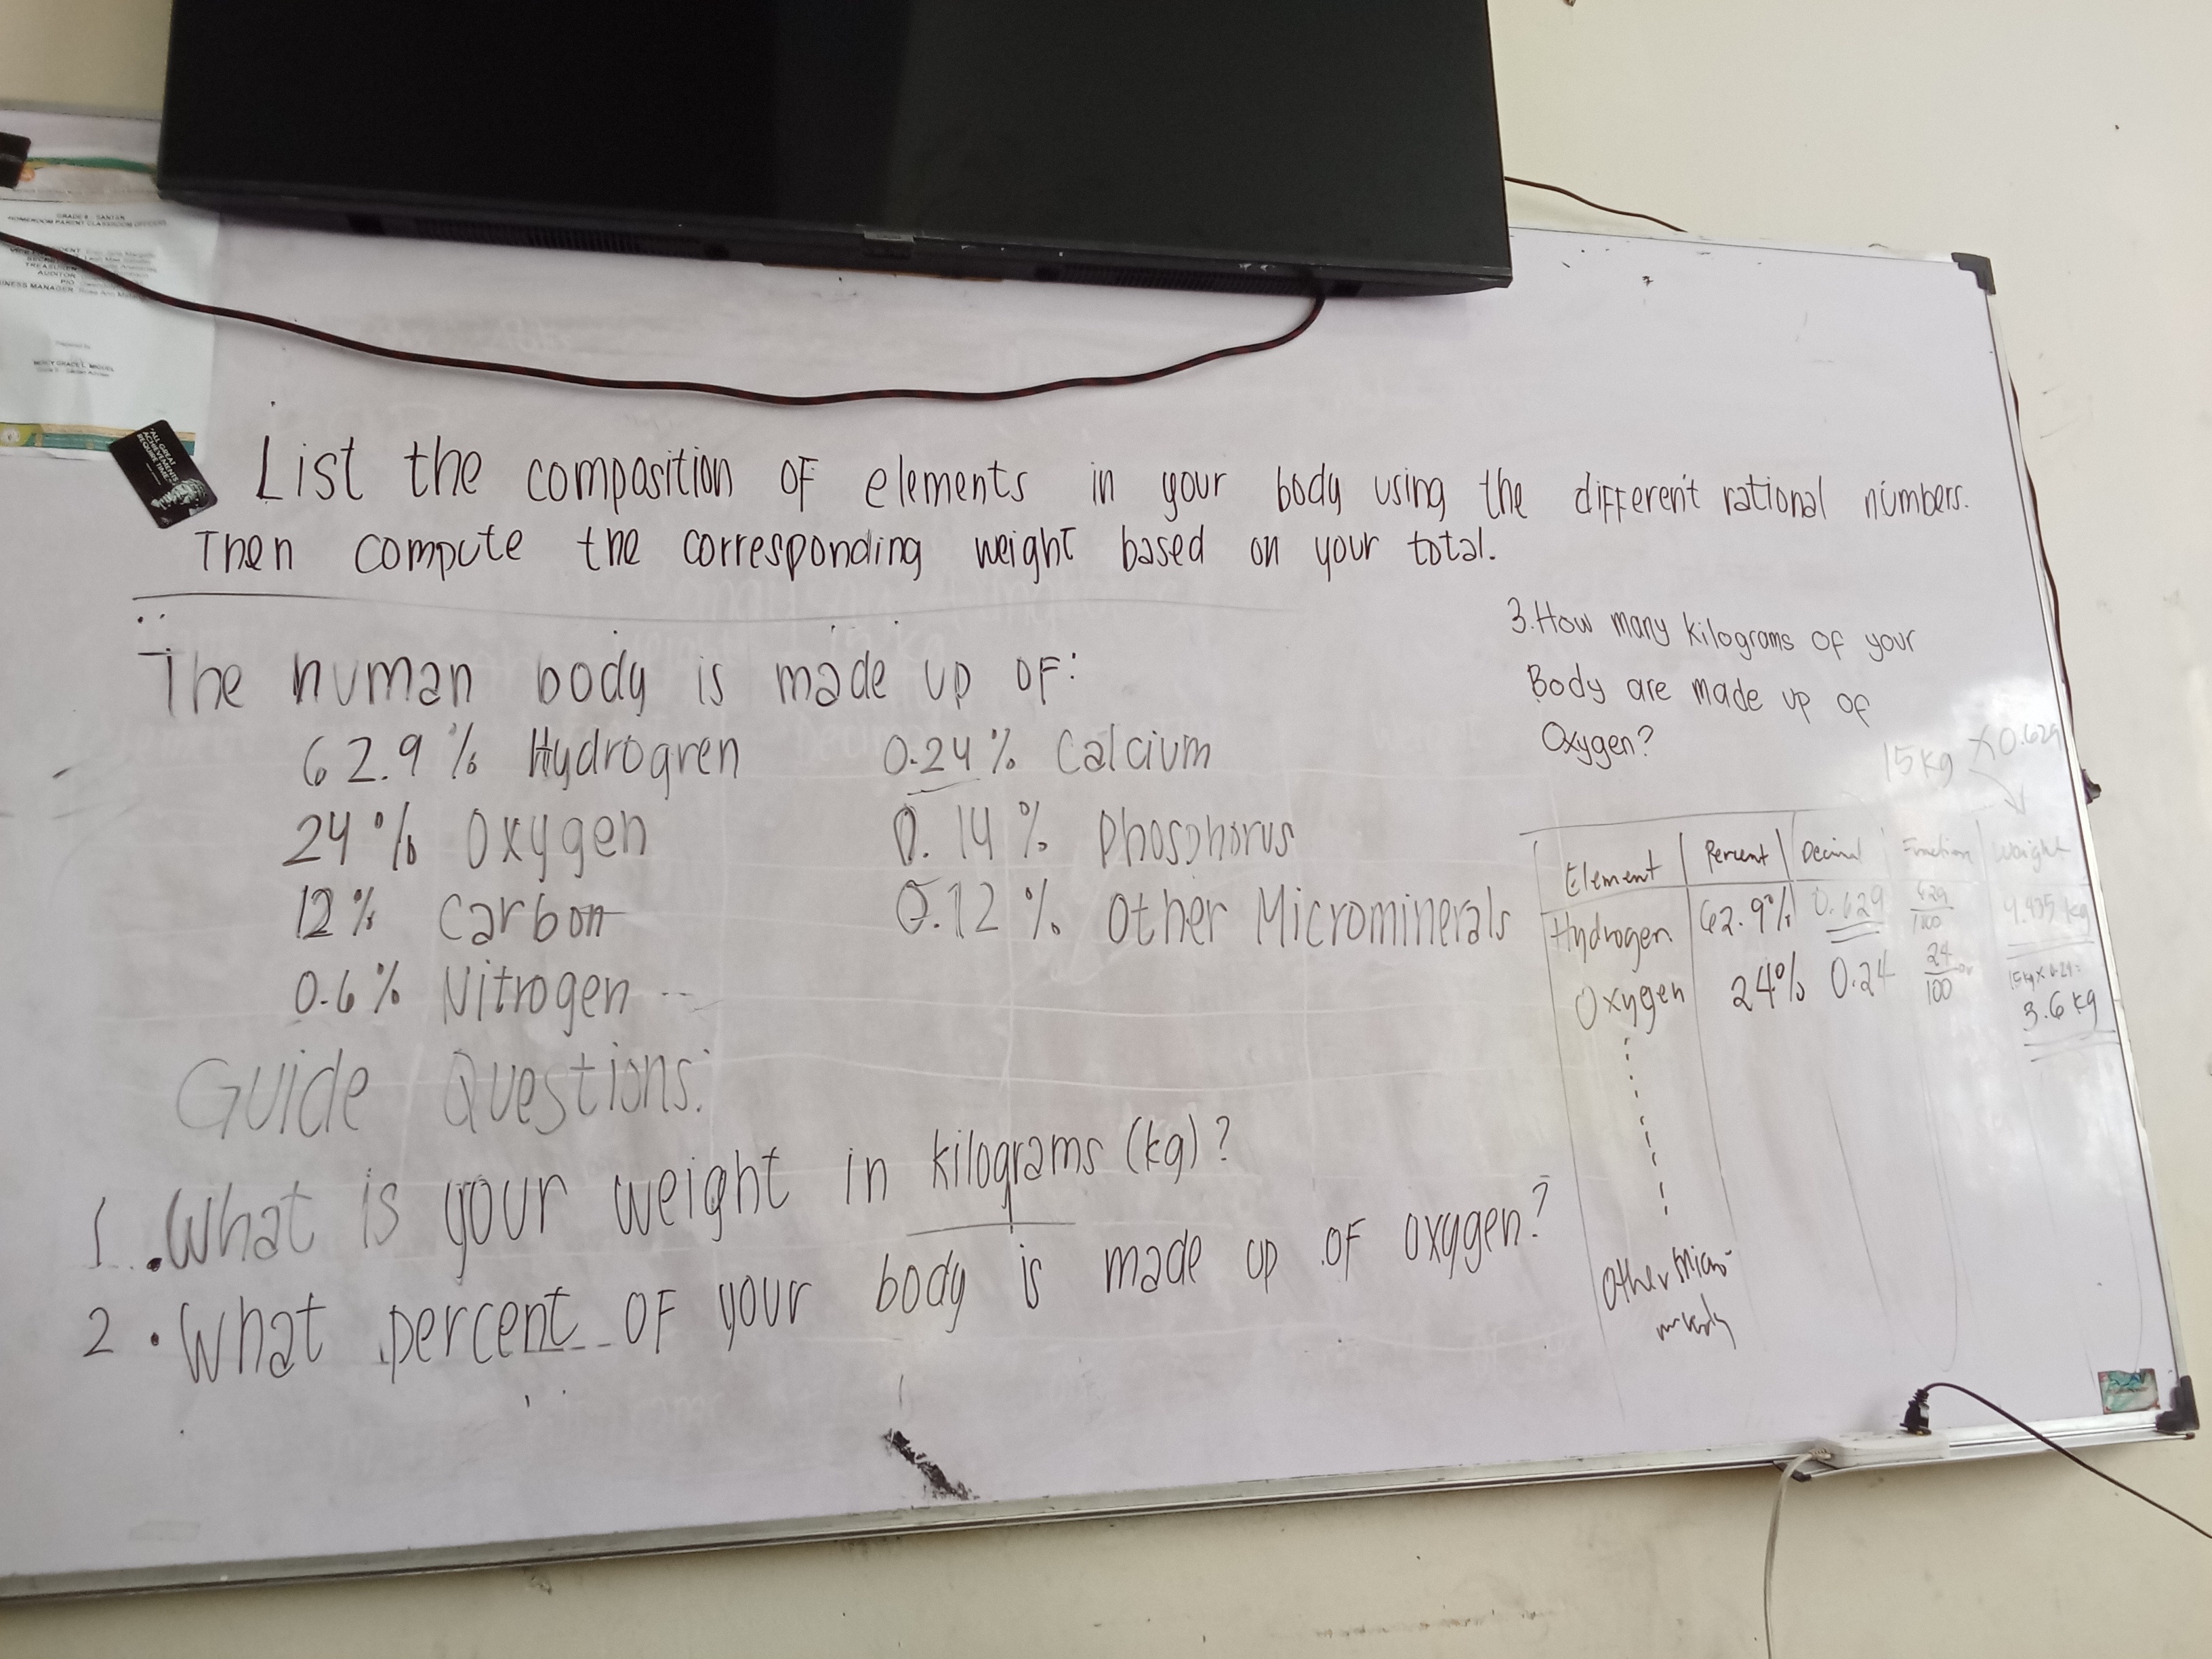 GRADE 9 - SANTAN
HOMEROOM PARENT CLASSROOM OFFICERS
TREASURER
AUDITOR
PIO
MANAGER
"ALL GREAT
ACHIEVEMENTS
REQUIRE TIME."
List the composition of elements in your body using the different rational numbers.
Then compute the corresponding weight based on your total.
The human body is made up of:
62.9% Hydrogren
0.24% Calcium
24% Oxygen
0.14% Phosphorus
12% Carbon
0.12% Other Microminerals
0.6% Nitrogen
Guide Questions:
1. What is your weight in kilograms (kg)?
2. What percent of your body is made up of oxygen?
3. How many kilograms of your
Body are made up of
Oxygen?
15 kg X 0.629
Element Percent Decimal Fraction Weight
Hydrogen 62.9% 0.629 9.435 kg
Oxygen 24% 0.24 24/100 or 3.6 kg
Other Micro-